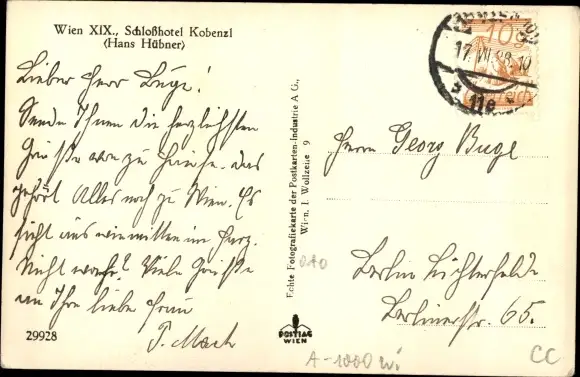 Wien XIX., Schloßhotel Kobenzl
(Hans Hübner)
Lieber Herr Buge!
Sende Ihnen die herzlichsten
Grüsse von zu Hause. Das
gehört Alles noch zu Wien. Es
sieht aus wie mitten im Harz.
Nicht wahr? Viele Grüsse
an Ihre liebe Frau
P. Mach
29928
Echte Fotografiekarte der Postkarten-Industrie A G.,
Wien, I Wollzeile 9
POSTIAG
WIEN
10g
17. VII. 28. 10
11e
Herrn Georg Buge
Berlin Lichterfelde
Berlinerstr. 65.
A-1000 Wi
CC